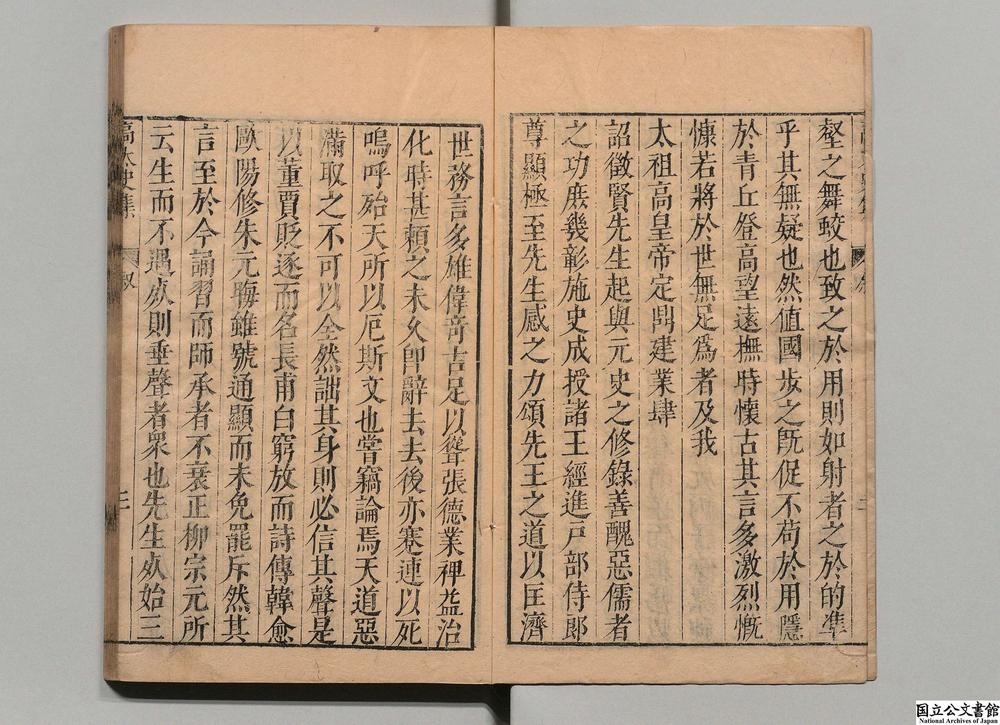 壑之舞蛟也致之於用則如射者之於的準
乎其無疑也然值國步之旣促不苟於用隱
於青丘登高望遠撫時懷古其言多激烈慨
慷若將於世無足爲者及我
太祖高皇帝定鼎建業肆
詔徵賢先生起與元史之修錄善醜惡儒者
之功庻幾彰施史成授諸王經進戸部侍郎
尊顯極至先生感之力頌先王之道以匡濟
世務言多雄偉竒古足以聳張德業裨益治
化時甚頼之未久卽辭去去後亦蹇連以死
嗚呼殆天所以厄斯文也嘗竊論焉天道惡
滿取之不可以全然詘其身則必信其聲是
以董賈貶逐而名長甫白窮放而詩傳韓愈
歐陽修朱元晦雖號通顯而未免罷斥然其
言至於今誦習而師承者不衰正柳宗元所
云生而不遇歿則垂聲者衆也先生歿始三
高太史集
叙
二
国立公文書館
National Archives of Japan